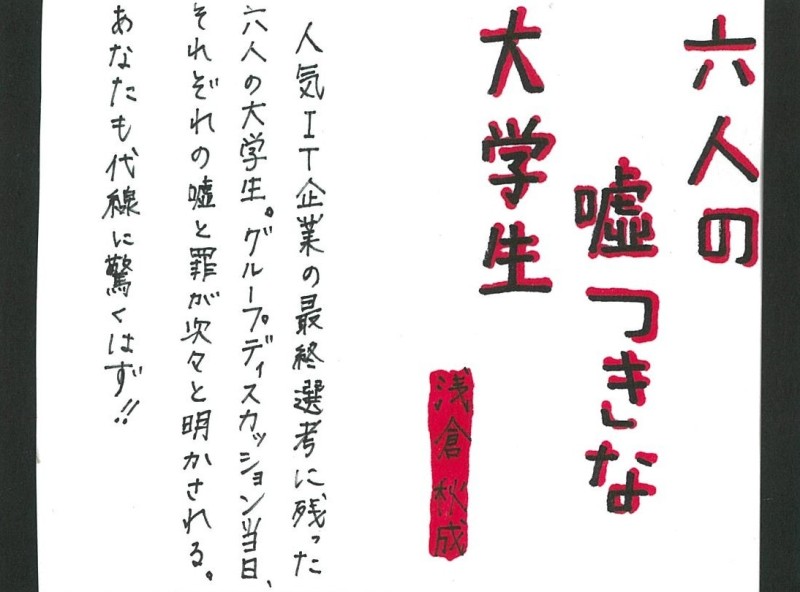 六人の
嘘つきな
大学生
浅倉秋成
人気IT企業の最終選考に残った
六人の大学生。グループディスカッション当日、
それぞれの嘘と罪が次々と明かされる。
あなたも代線に驚くはず!!